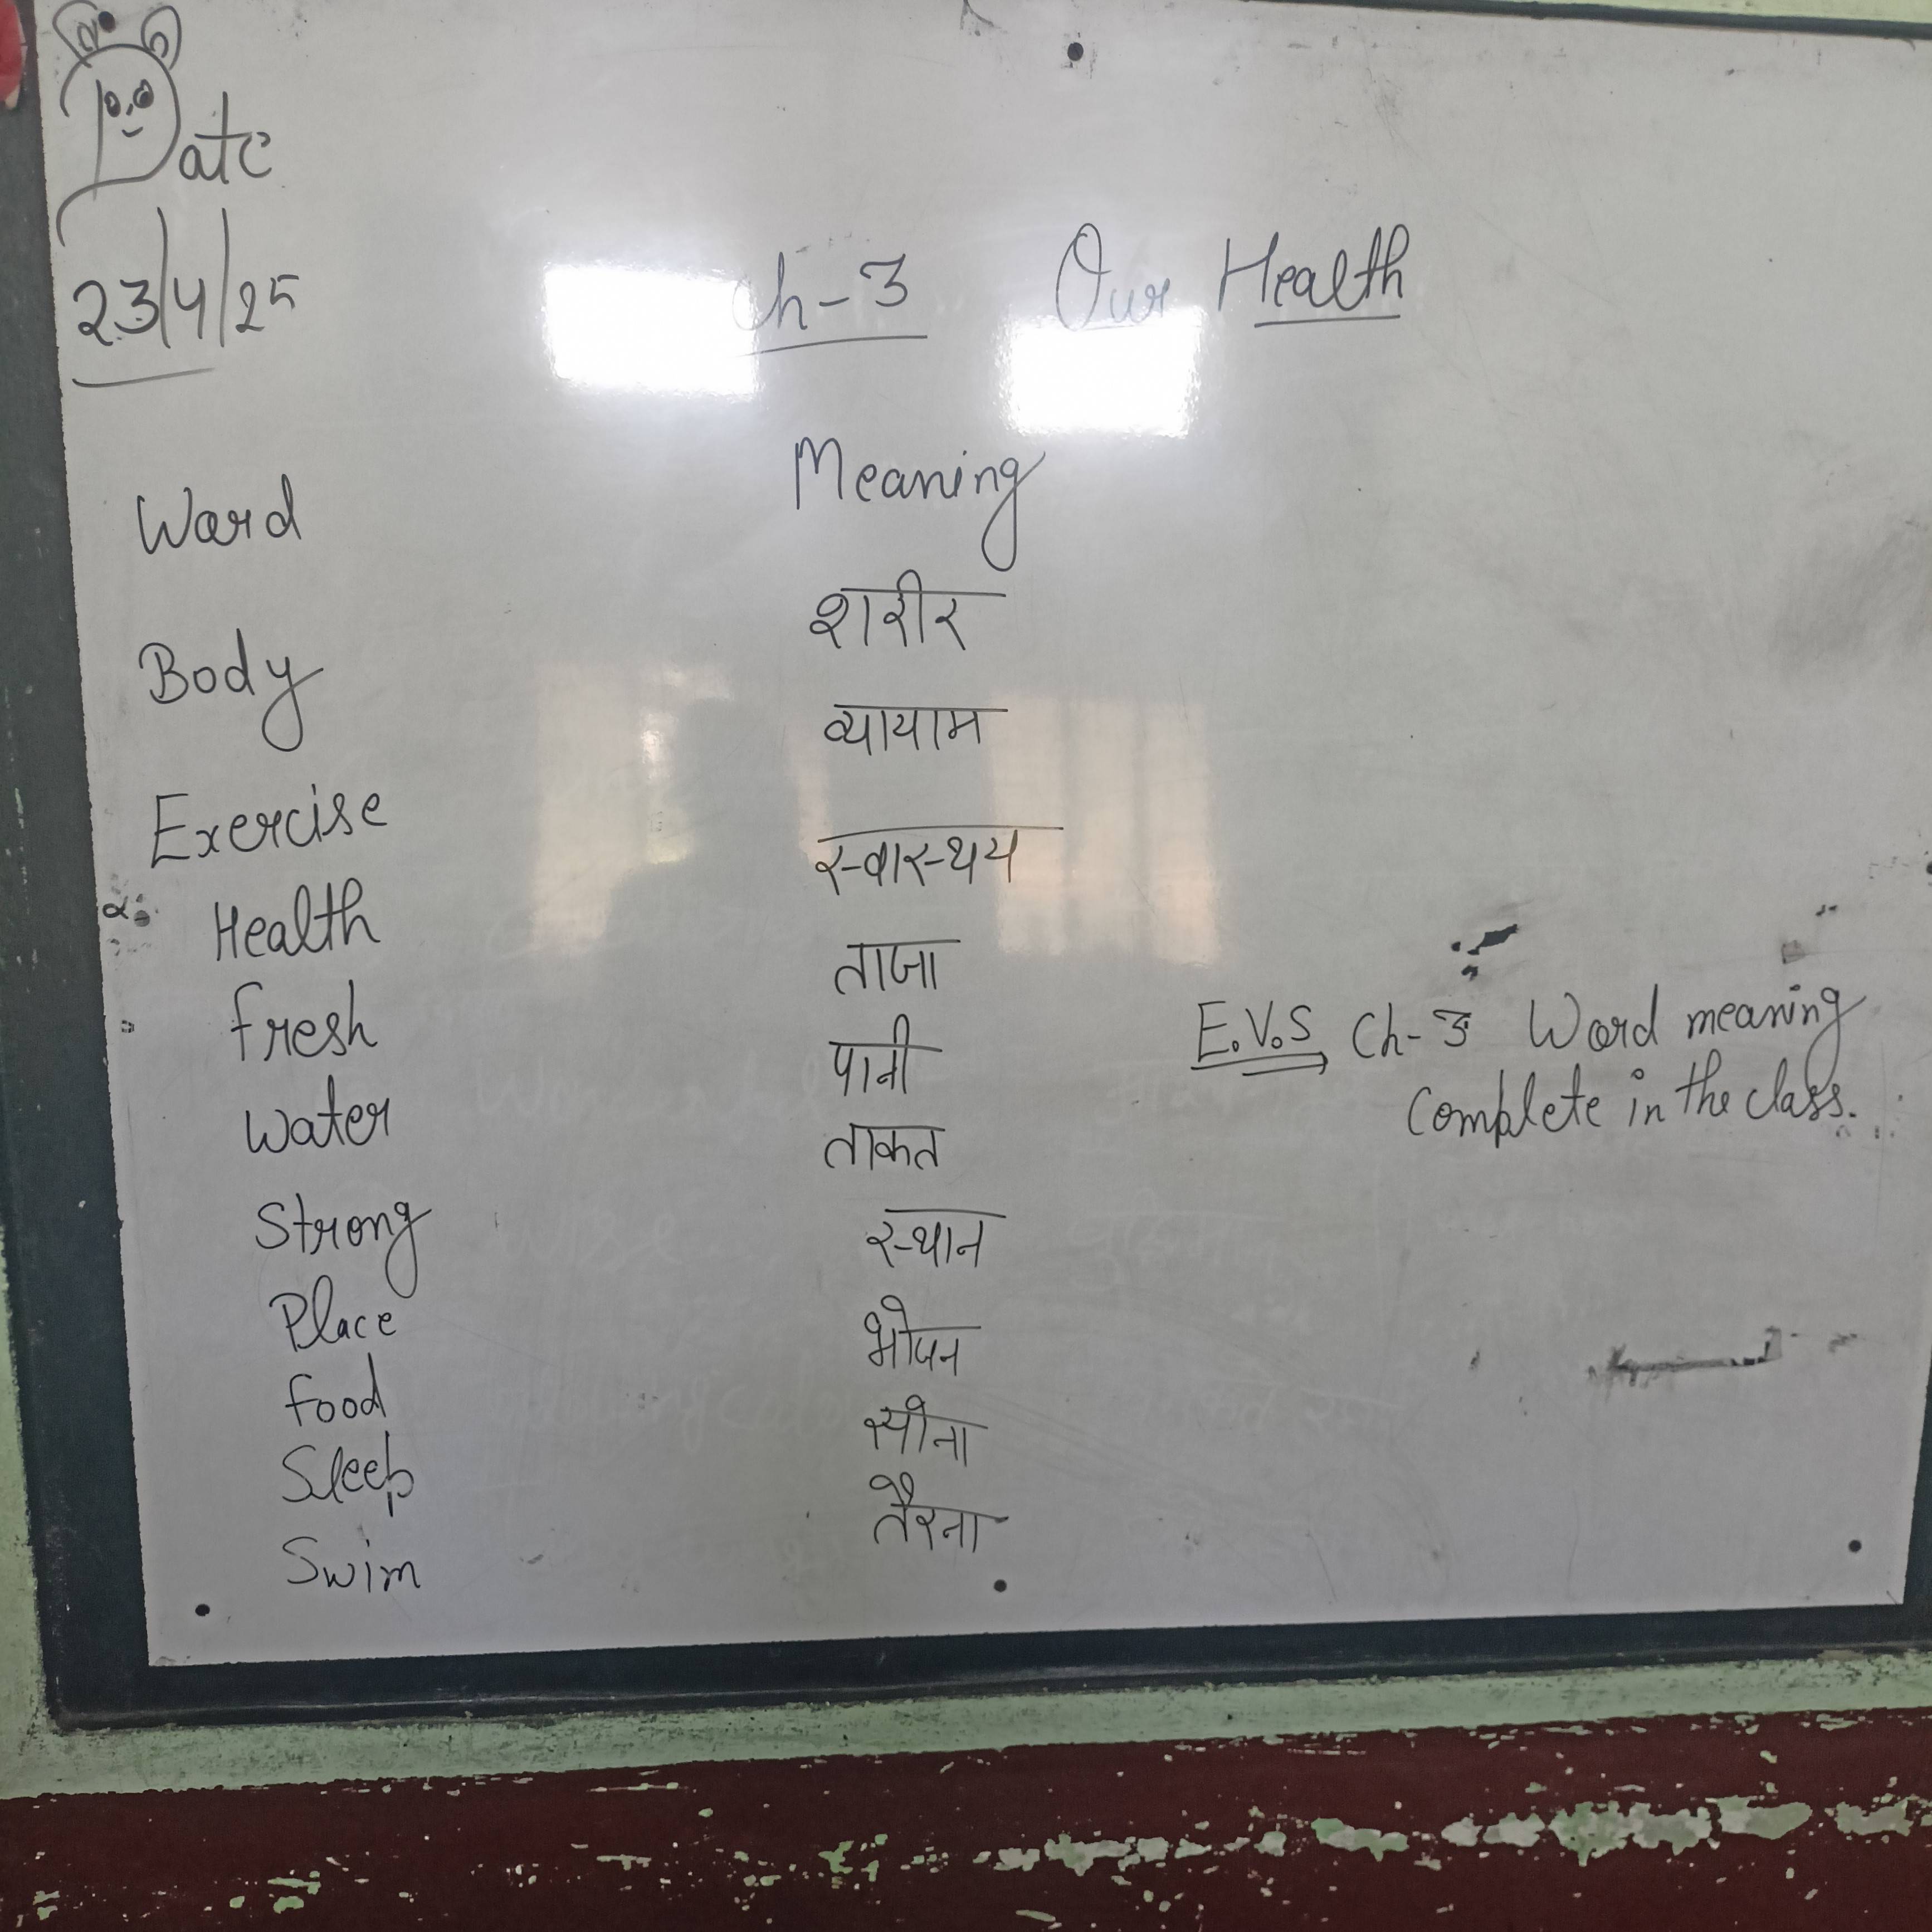 Date
23/4/25
Ch-3 Our Health
Word Meaning
Body शरीर
Exercise व्यायाम
Health स्वास्थय
Fresh ताजा
Water पानी
Strong ताकत
Place स्थान
Food भोजन
Sleep सोना
Swim तैरना
E.V.S Ch-3 Word meaning
Complete in the class.